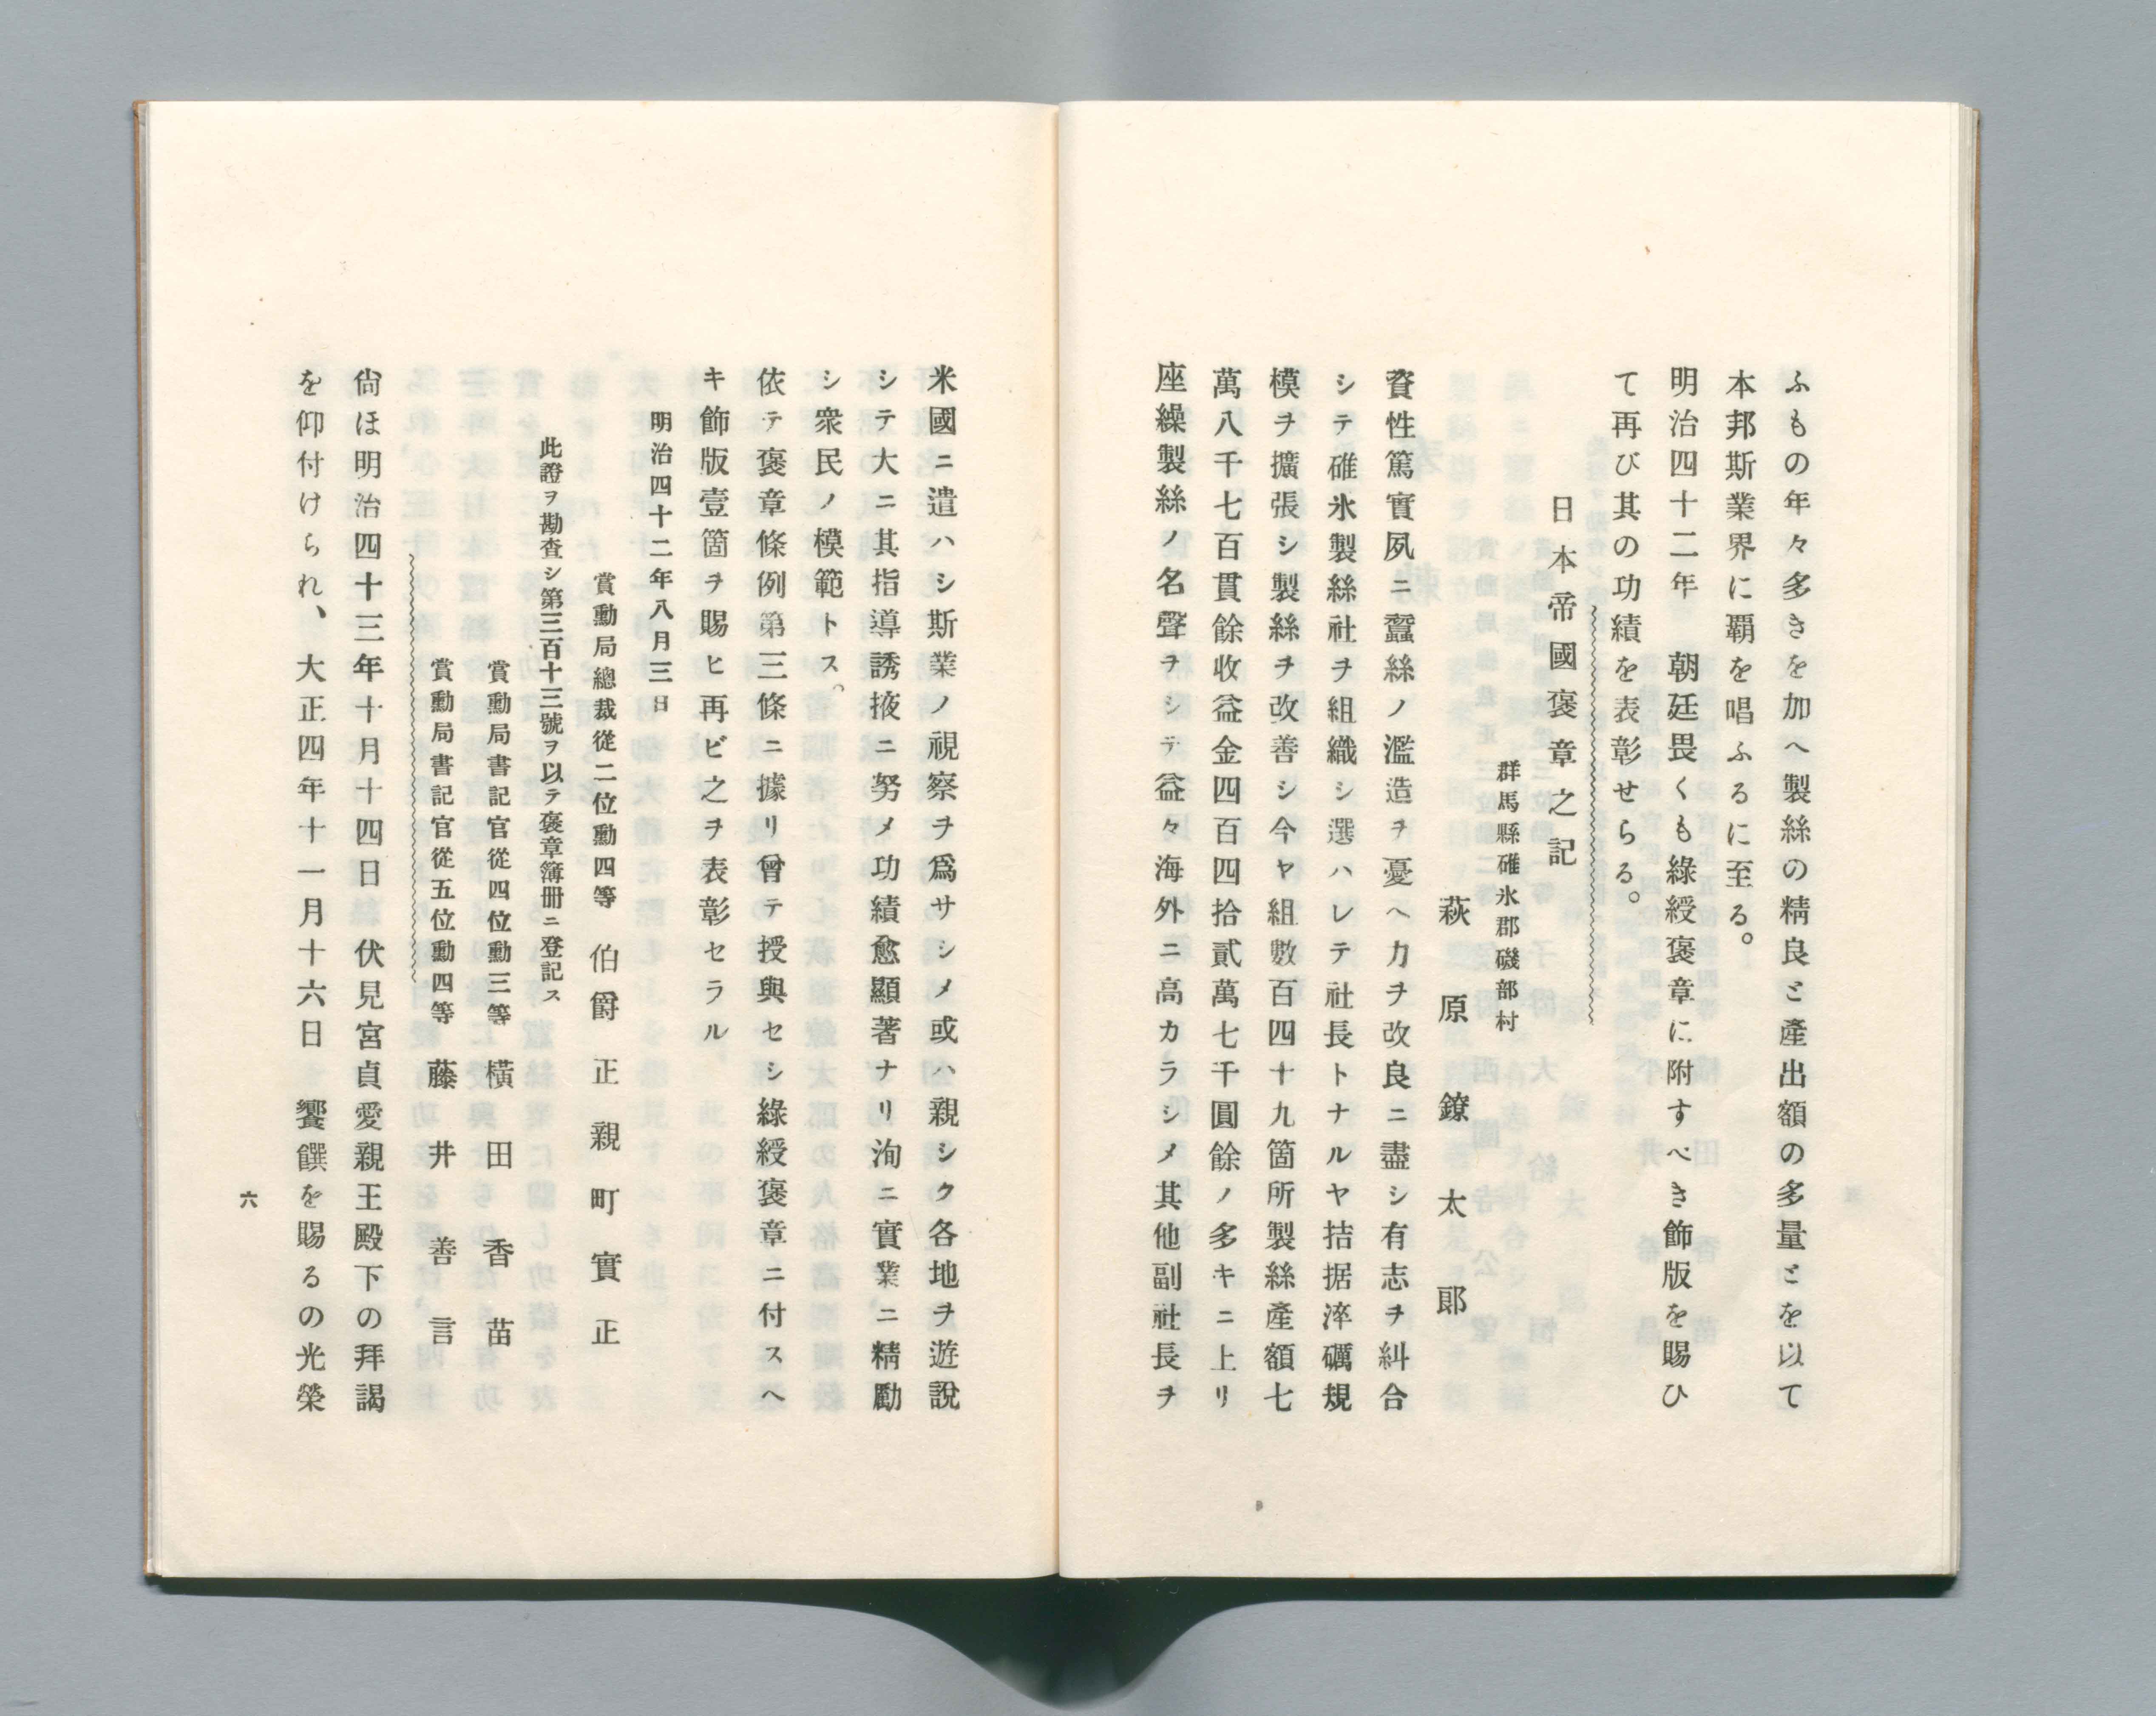 ふもの年々多きを加へ製絲の精良と產出額の多量とを以て
本邦斯業界に覇を唱ふるに至る。
明治四十二年　朝廷畏くも綠綬褒章に附すべき飾版を賜ひ
て再び其の功績を表彰せらる。
日本帝國褒章之記
群馬縣碓氷郡磯部村
萩原鐐太郞
資性篤實夙ニ蠶絲ノ濫造ヲ憂ヘ力ヲ改良ニ盡シ有志ヲ糾合
シテ碓氷製絲社ヲ組織シ選ハレテ社長トナルヤ拮据淬礪規
模ヲ擴張シ製絲ヲ改善シ今ヤ組數百四十九箇所製絲產額七
萬八千七百貫餘收益金四百四拾貳萬七千圓餘ノ多キニ上リ
座繰製絲ノ名聲ヲシテ益々海外ニ高カラシメ其他副社長ヲ
米國ニ遣ハシ斯業ノ視察ヲ爲サシメ或ハ親シク各地ヲ遊說
シテ大ニ其指導誘掖ニ努メ功績愈顯著ナリ洵ニ實業ニ精勵
シ衆民ノ模範トス。
依テ褒章條例第三條ニ據リ曾テ授與セシ綠綬褒章ニ付スヘ
キ飾版壹箇ヲ賜ヒ再ビ之ヲ表彰セラル
明治四十二年八月三日
賞勳局總裁從二位勳四等　伯爵　正親町實正
此證ヲ勘査シ第三百十三號ヲ以テ褒章簿册ニ登記ス
賞勳局書記官從四位勳三等　橫田香苗
賞勳局書記官從五位勳四等　藤井善言
尙ほ明治四十三年十月十四日　伏見宮貞愛親王殿下の拜謁
を仰付けられ、大正四年十一月十六日　饗饌を賜るの光榮
六